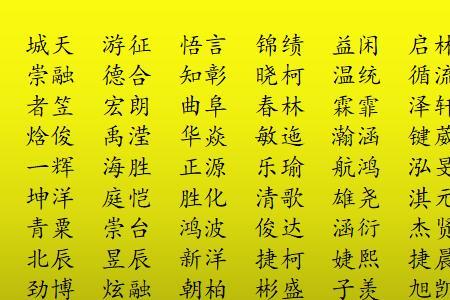 城天 游征 悟言 锦绩 益闲 启林
崇融 德合 知彰 晓柯 温统 循流
者笠 宏朗 曲阜 春林 霖霏 泽轩
焓俊 禹滢 华焱 敏迤 瀚涵 键葳
一辉 海胜 正源 乐瑜 航鸿 泓旻
坤洋 庭恺 胜化 清歌 雄尧 淇元
青粟 崇台 鸿波 俊达 涵衍 杰贤
北辰 昱辰 新洋 捷柯 婕熙 捷晨
劲博 炫融 朝柏 彬盛 子羡 旭凯